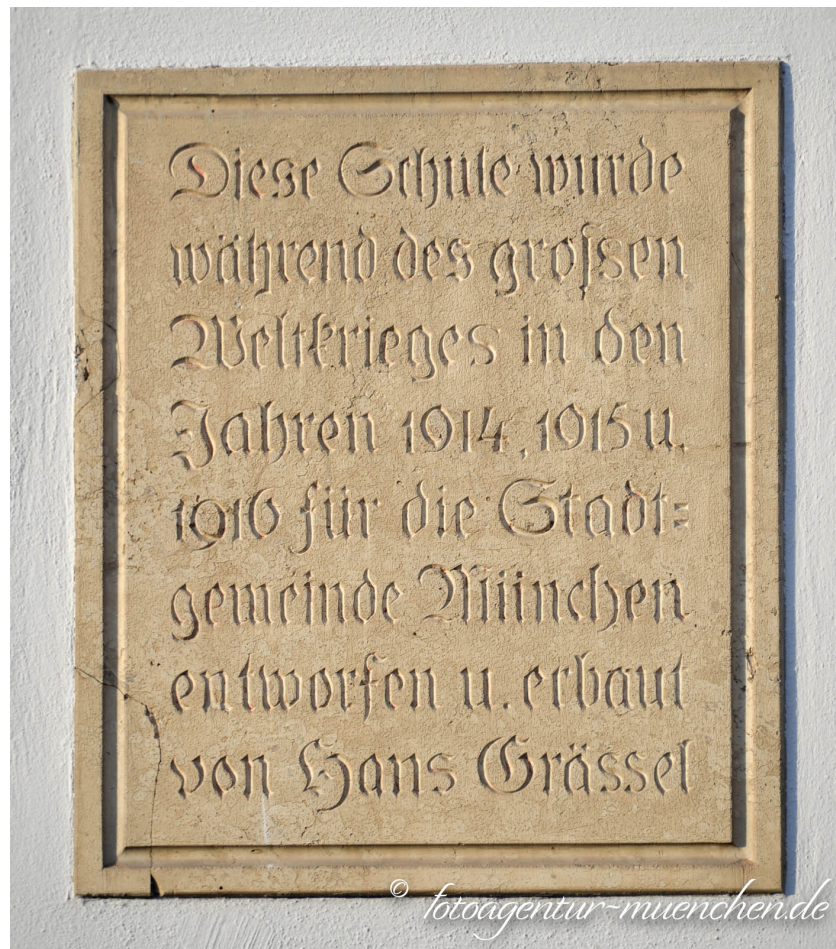 Diese Schule wurde
während des grossen
Weltkrieges in den
Jahren 1914, 1915 u.
1916 für die Stadt=
gemeinde München
entworfen u. erbaut
von Hans Grässel
© fotoagentur-muenchen.de